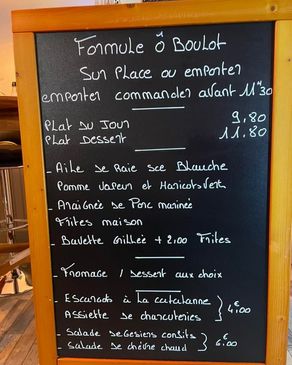 Formule Ô Boulot
Sur Place ou emporter
emporter commander avant 11H30
Plat du Jour 9.80
Plat Dessert 11.80
- Aile de Raie sce Blanche
Pomme vapeur et Haricots verts
- Araignée de Porc marinée
Frites maison
- Bavette Grillée + 2.00 Frites
- Fromage / Dessert aux choix
- Escargots à La catalanne
Assiette de charcuteries } 4.00€
- Salade de Gesiers confits
- Salade de chèvre chaud } 6.00€